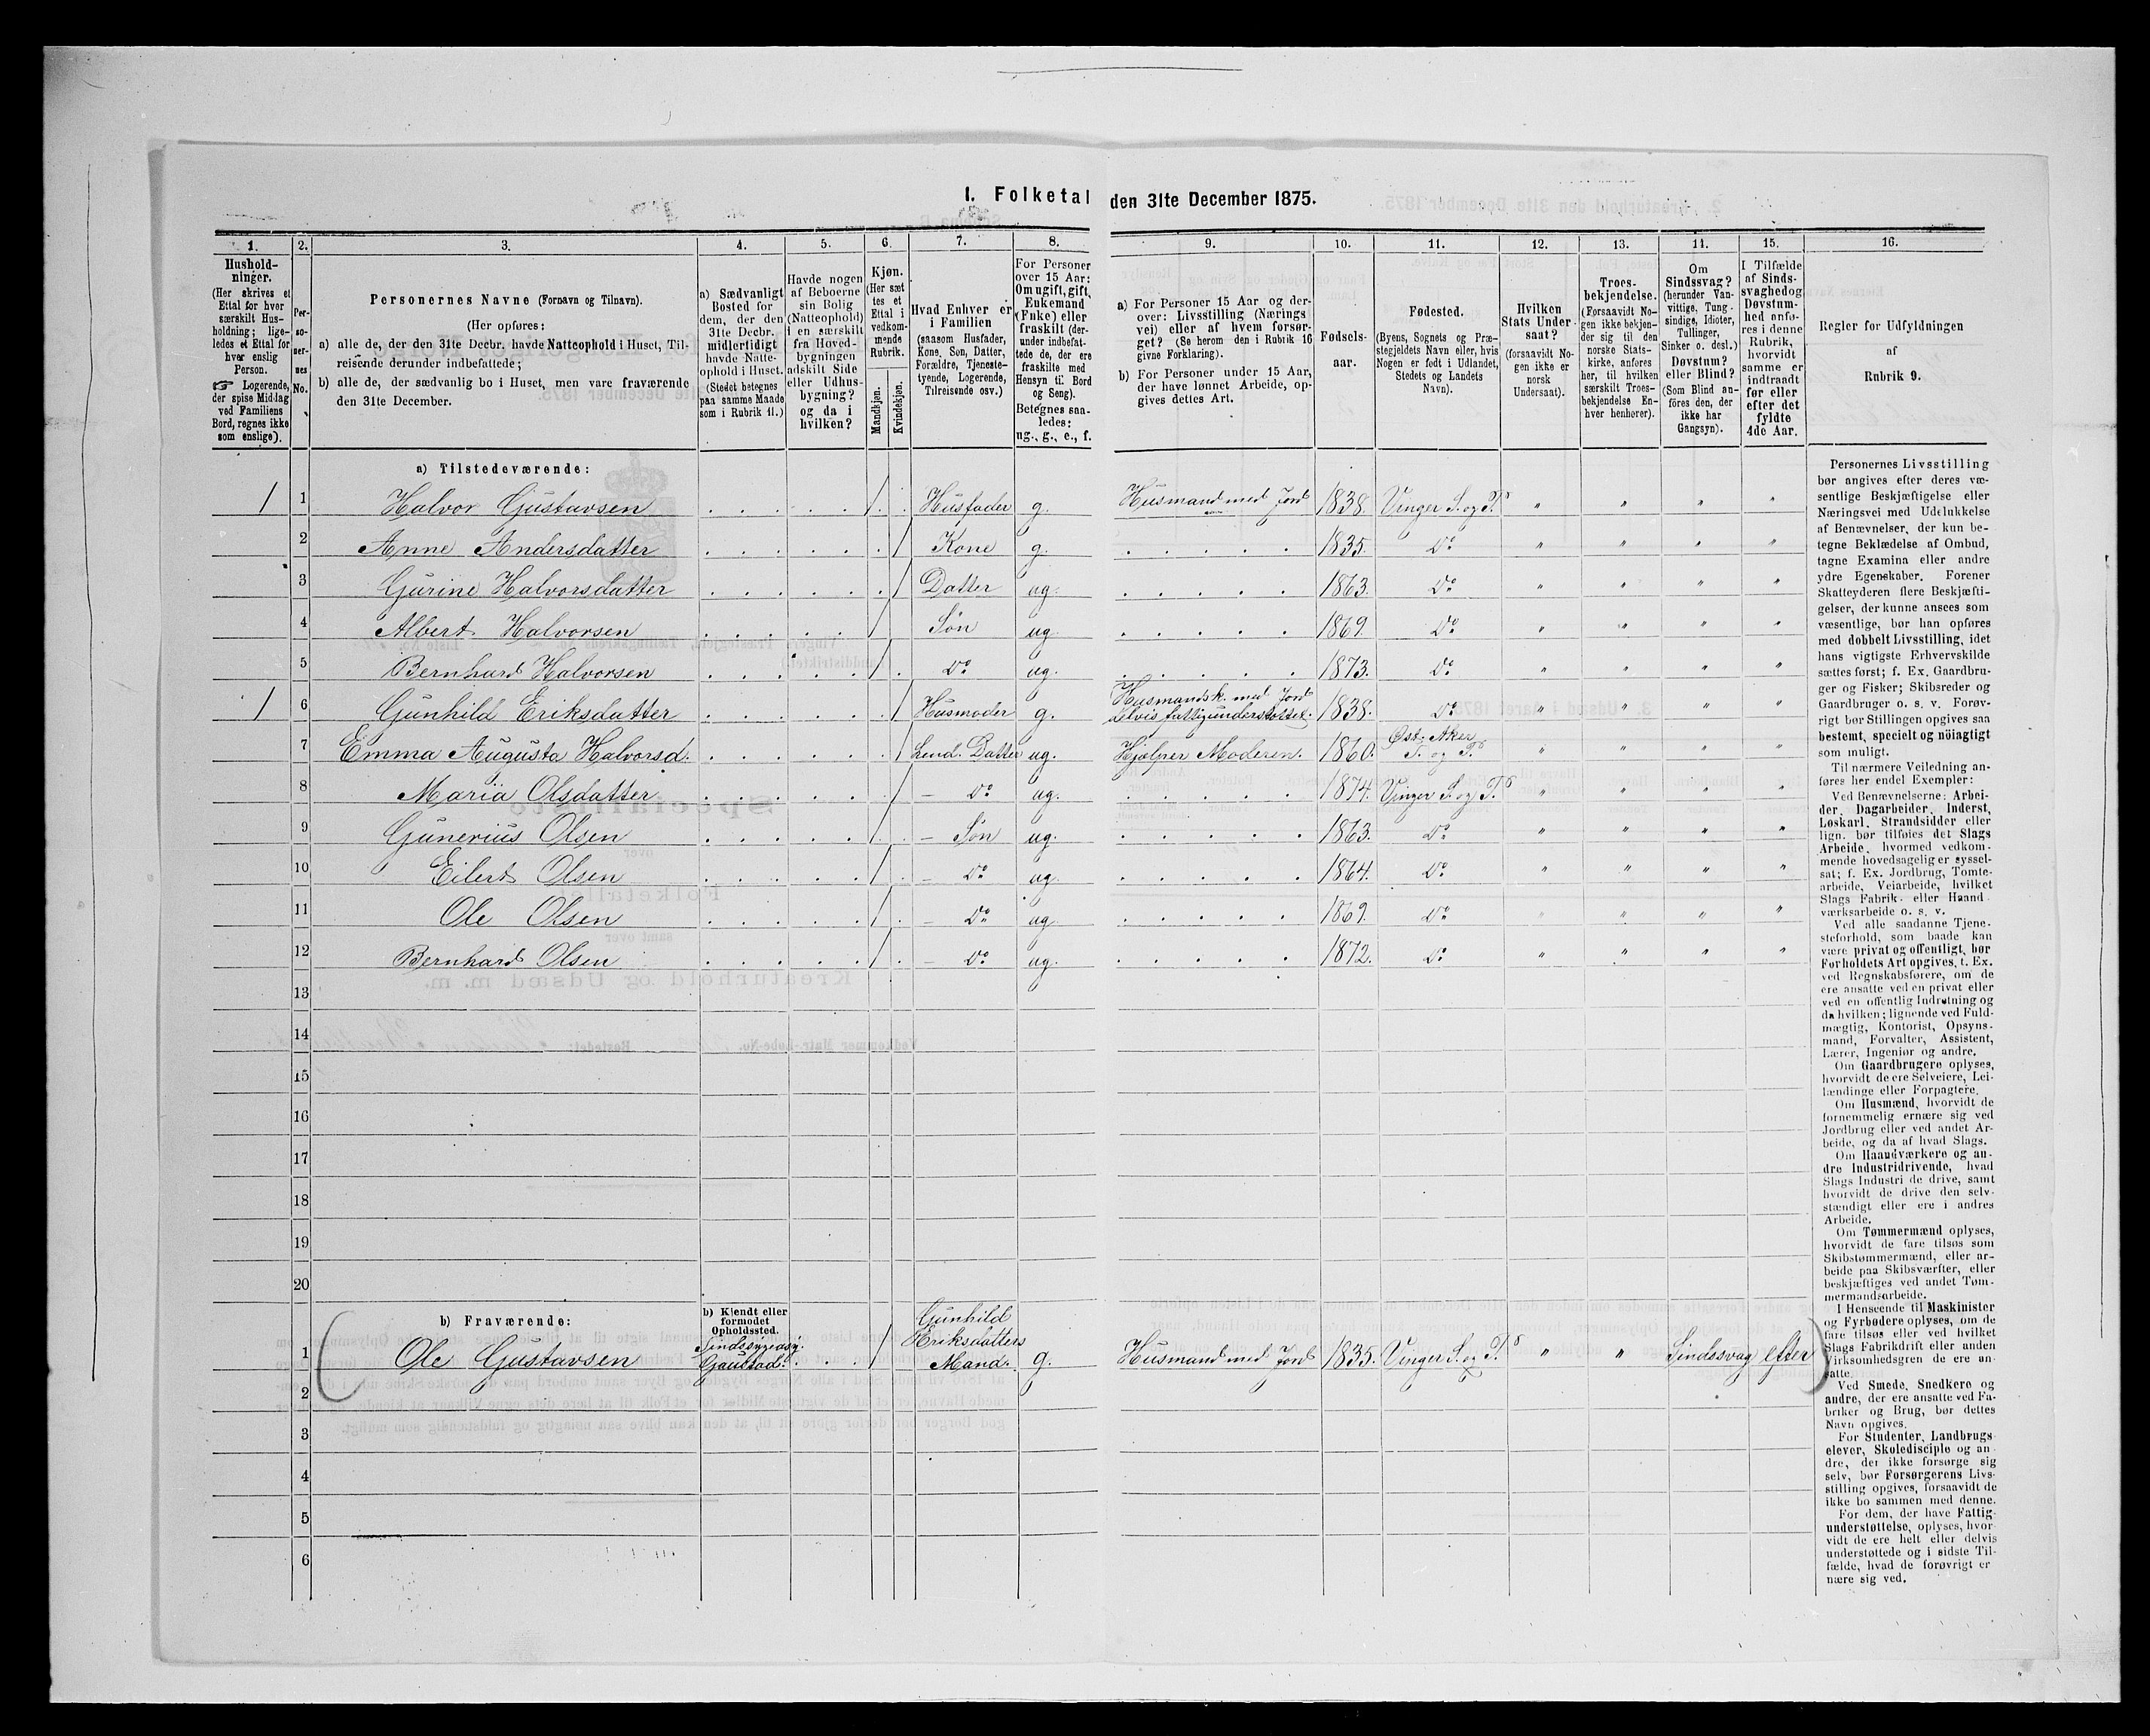 1. Folketal den 31te December 1875.
1. 2. 3. 4. 5. 6. 7. 8. 9. 10. 11. 12. 13. 11. 15. 16.
Hushold-
ninger.
(Her skrives et
Ettal for hver
særskilt Hus-
holdning; lige-
ledes et Ettal for
hver enslig
Person.
☞ Logerende,
der spise Middag
ved Familiens
Bord, regnes ikke
som enslige).
Per-
so-
ner-
nes
No.
Personernes Navne (Fornavn og Tilnavn).
(Her opføres:
a) alle de, der den 31te Decbr. havde Natteophold i Huset, Til-
reisende derunder indbefattede;
b) alle de, der sædvanlig bo i Huset, men vare fraværende
den 31te December.
a) Sædvanligt
Bosted for
dem, der den
31te Decbr.
midlertidigt
havde Natte-
ophold i Huset.
(Stedet betegnes
paa samme Maade
som i Rubrik 11.)
Havde nogen
af Beboerne
sin Bolig
(Natteophold)
i en særskilt
fra Hoved-
bygningen
adskilt Side
eller Udhus-
bygning?
og da i
hvilken?
Kjøn.
(Her sæt
tes et
Ettal i
vedkom-
mende
Rubrik.
Mandkjøn.
Kvindekjøn.
Hvad Enhver er
i Familien
(saasom Husfader,
Kone, Son, Datter,
Forældre, Tjeneste-
tyende, Logerende,
Tilreisende osv.)
For Personer
over 15 Aar:
Om ugift, gift,
Enkemand
(Enke) eller
fraskilt (der-
under indbefat-
tede de, der ere
fraskilte med
Hensyn til Bord
og Seng).
Betegnes saa-
ledes:
ug., g., e., f.
a) For Personer 15 Aar og der-
over: Livsstilling (Nærings
vei) eller af hvem forsør-
get? (Se herom den i Rubrik 16
givne Forklaring).
b) For Personer under 15 Aar,
der have lønnet Arbeide, op-
gives dettes Art.
Fødsels-
aar.
Fødested.
(Byens, Sognets og Præ-
stegjeldets Navn eller, hvis
Nogen er født i Udlandet,
Stedets og Landets
Navn).
Hvilken
Stats Under-
saat?
(forsaavidt No-
gen ikke er
norsk
Undersaat).
Troes-
bekjendelse.
(Forsaavidt No-
gen ikke bekjen-
der sig til den
norske Stats-
kirke, anføres
her, til hvilken
særskilt Troes-
bekjendelse En-
hver henhører).
Om
Sindssvag?
(herunder Van-
vittige, Tung-
sindige, Idioter,
Tullinger,
Sinker o. desl.)
Døvstum?
eller Blind?
(Som Blind an-
føres den, der
ikke har
Gangsyn).
I Tilfælde
af Sinds-
svaghed og
Døvstum-
hed anfø-
res i denne
Rubrik,
hvorvidt
samme er
indtraadt
før eller
efter det
fyldte
4de Aar.
Regler for Udfyldningen
af
Rubrik 9.
a) Tilstedeværende:
1 1 Halvor Gustavsen 1 Husfader g. Husmand med Jord 1838. Vinger S. og Pd " " " "
2 Anne Andersdatter 1 Kone g. 1835. Do " " " "
3 Gurine Halvorsdatter 1 Datter ug. 1863. Do " " " "
4 Albert Halvorsen 1 Søn ug 1869. Do " " " "
5 Bernhard Halvorsen 1 Do ug. 1873. Do " " " "
1 6 Gunhild Eriksdatter 1 Husmoder g. Husmandsk. med Jord
delvis fattigunderstøttet. 1838. Do " " " "
7 Emma Augusta Halvorsd. 1 Lend. Datter ug. Hjælper Moderen. 1860. Øst. Aker
S. og Pd " " " "
8 Maria Olsdatter 1 – Do ug. 1874. Vinger S. og Pd " " " "
9 Gunerius Olsen 1 – Søn ug. 1863. Do " " " "
10 Eilert Olsen 1 – Do ug. 1864. Do " " " "
11 Ole Olsen 1 – Do ug 1869. Do " " " "
12 Bernhard Olsen 1 – Do ug. 1872. Do " " " "
13
14
15
16
17
18
19
20
b) Fraværende:
b) Kjendt eller
formodet
Opholdssted.
1 Ole Gustavsen Sindssygeasy.
Gaustad. 1 Gunhild
Eriksdatters
Mand. g. Husmand med Jord 1835. Vinger S. og Pd " " Sindssvag efter
2
3
4
5
6
Personernes Livsstilling
bør angives efter deres væ-
sentlige Beskjæftigelse eller
Næringsvei med Udelukkelse
af Benævnelser, der kun be-
tegne Beklædelse af Ombud,
tagne Examina eller andre
ydre Egenskaber. Forener
Skatteyderen flere Beskjæfti-
gelser, der kunne ansees som
væsentlige, bør han opføres
med dobbelt Livsstilling, idet
hans vigtigste Erhvervskilde
sættes først; f. Ex. Gaardbru-
ger og Fisker; Skibsreder og
Gaardbruger o. s. v. Forøv-
rigt bør Stillingen opgives saa
bestemt, specielt og nøiagtigt
som muligt.
Til nærmere Veiledning an-
føres her endel Exempler:
Ved Benævnelserne: Arbei-
der, Dagarbeider, Inderst,
Løskarl, Strandsidder eller
lign. bør tilføies det Slags
Arbeide, hvormed vedkom-
mende hovedsagelig er syssel-
sat; f. Ex. Jordbrug, Tomte-
arbeide, Veiarbeide, hvilket
Slags Fabrik- eller Haand-
værksarbeide o. s. v.
Ved alle saadanne Tjene-
steforhold, som baade kan
være privat og offentligt, bør
Forholdets Art opgives, t. Ex.
ved Regnskabsførere, om de
ere ansatte ved en privat eller
ved en offentlig Indretning og
da hvilken; lignende ved Fuld-
mægtig, Kontorist, Opsyns-
mand, Forvalter, Assistent,
Lærer, Ingeniør og andre.
Om Gaardbrugere oplyses,
hvorvidt de ere Selveiere, Lei-
lændinge eller Forpagtere.
Om Husmænd, hvorvidt de
fornemmelig ernære sig ved
Jordbrug eller ved andet Ar-
beide, og da af hvad Slags.
Om Haandværkere og an-
dre Industridrivende, hvad
Slags Industri de drive, samt
hvorvidt de drive den selv-
stændigt eller ere i andres
Arbeide.
Om Tømmermænd oplyses,
hvorvidt de fare tilsøs som
Skibstømmermænd, eller ar-
beide paa Skibsværfter, eller
beskjæftiges ved andet Tøm-
mermandsarbeide.
I Henseende til Maskinister
og Fyrbødere oplyses, om de
fare tilsøs eller ved hvilket
Slags Fabrikdrift eller anden
Virksomhedsgren de ere an-
satte.
Ved Smede, Snedkere og
andre, der ere ansatte ved Fa-
briker og Brug, bør dettes
Navn opgives.
For Studenter, Landbrugs-
elever, Skoledisciple og an-
dre, der ikke forsørge sig
selv, bør Forsørgerens Livs-
stilling opgives, forsaavidt de
ikke bo sammen med denne.
For dem, der have Fattig-
understøttelse, oplyses, hvor-
vidt de ere helt eller delvis
understøttede og i sidste Til-
fælde, hvad de forøvrigt er
nære sig ved.